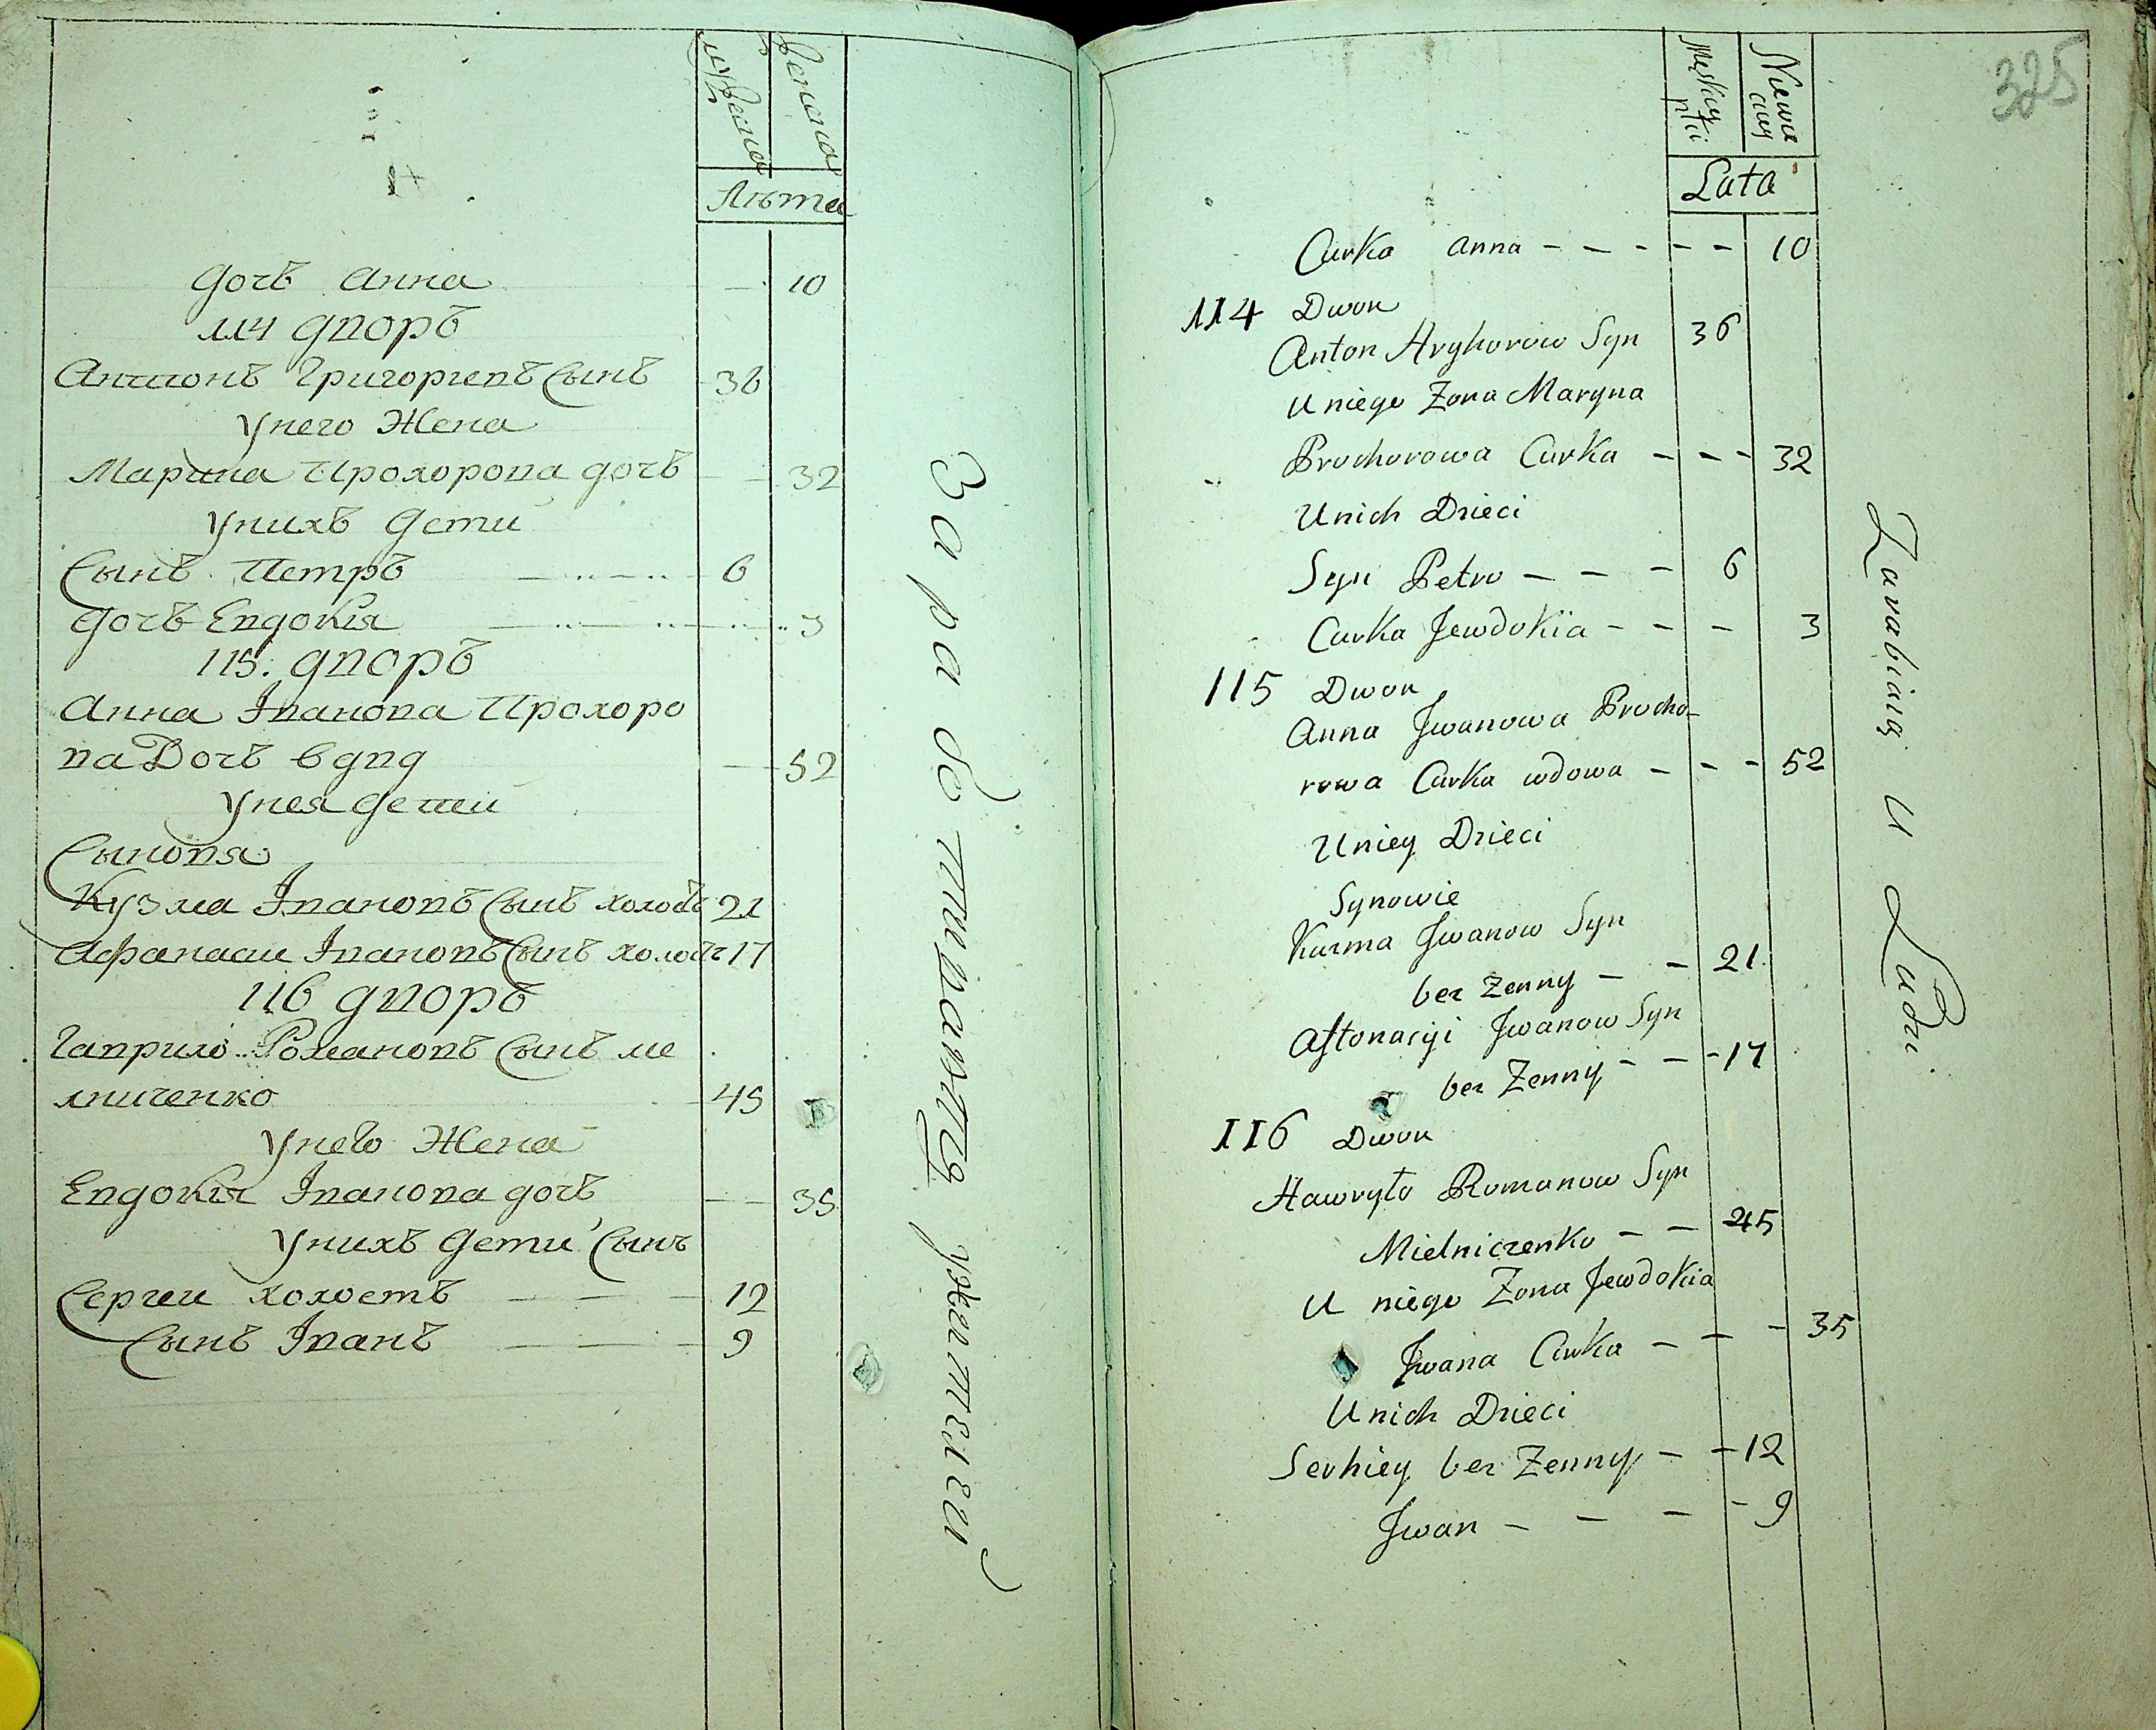 мужеска
женска
Лѣта
дочь Анна — 10
114 дворъ
Антонъ Григориевъ сынъ 36
У него Жена
Марина Прохорова дочь — — 32
У нихъ дети
Сынъ Петръ — — 6
дочь Евдокия — — — 3
115. дворъ
Анна Іванова Прохоро
ва Дочь вдва — 52
У нея дети
Сыновя
Кузма Івановъ сынъ холостъ 21
Афанаси Івановъ сынъ холостъ 17
116 дворъ
Гаврило Романовъ сынъ ме
лниченко 45
У него Жена
Евдокия Іванова дочь — — 35
У нихъ дети сынъ
Сергеи холостъ — — — 12
Сынъ Іванъ — — — 9
Зарабтивающ ужителеи
325
Męskiey płci
Niewiasciey
Lata
Curka Anna - - - - - 10
114 Dwor
Anton Hryhorow Syn 36
U niego Zona Maryna
Prochorowa Curka - - - 32
U nich Dzieci
Syn Petro - - - 6
Curka Jewdokiia - - - 3
115 Dwor
Anna Jwanowa Procho-
rowa Curka wdowa - - - 52
U niey Dzieci
Synowie
Kuzma Jwanow Syn
bez Zenny - - 21.
Aftonasyi Jwanow Syn
bez Zenny - - - 17
116 Dwor
Hawryło Romanow Syn
Mielniczenko - - 45
U niego Zona Jewdokia
Jwana Curka - - - 35
U nich Dzieci
Serhiey bez Zenny - - 12
Jwan - - - - 9
Zarabiaią U Ludzi.